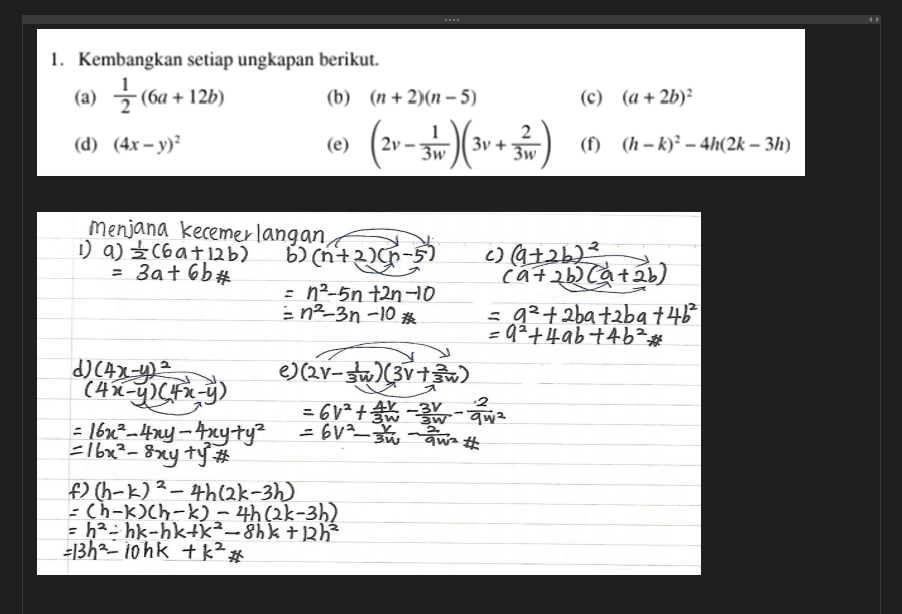 1. Kembangkan setiap ungkapan berikut.
(a) 1/2 (6a + 12b) (b) (n + 2)(n – 5) (c) (a + 2b)²
(d) (4x – y)² (e) (2v – 1/3w)(3v + 2/3w) (f) (h – k)² – 4h(2k – 3h)
menjana kecemerlangan
1) a) 1/2(6a+12b)
= 3a+6b#
b) (n+2)(n-5)
= n²-5n+2n-10
= n²-3n-10 #
c) (a+2b)²
(a+2b)(a+2b)
= a²+2ba+2ba+4b²
= a²+4ab+4b²#
d) (4x-y)²
(4x-y)(4x-y)
= 16x²-4xy-4xy+y²
= 16x²-8xy+y²#
e) (2v-1/3w)(3v+2/3w)
= 6v²+4v/3w-3v/3w-2/9w²
= 6v²-v/3w-2/9w² #
f) (h-k)²-4h(2k-3h)
= (h-k)(h-k)-4h(2k-3h)
= h²-hk-hk+k²-8hk+12h²
=13h²-10hk+k²#